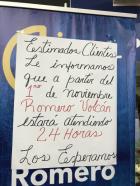 Estimador Clientes
Le informamos
que a partir del
1ro de Noviembre
Romero Volcán
estará atendiendo
24 Horas
Los Esperamos
Romero